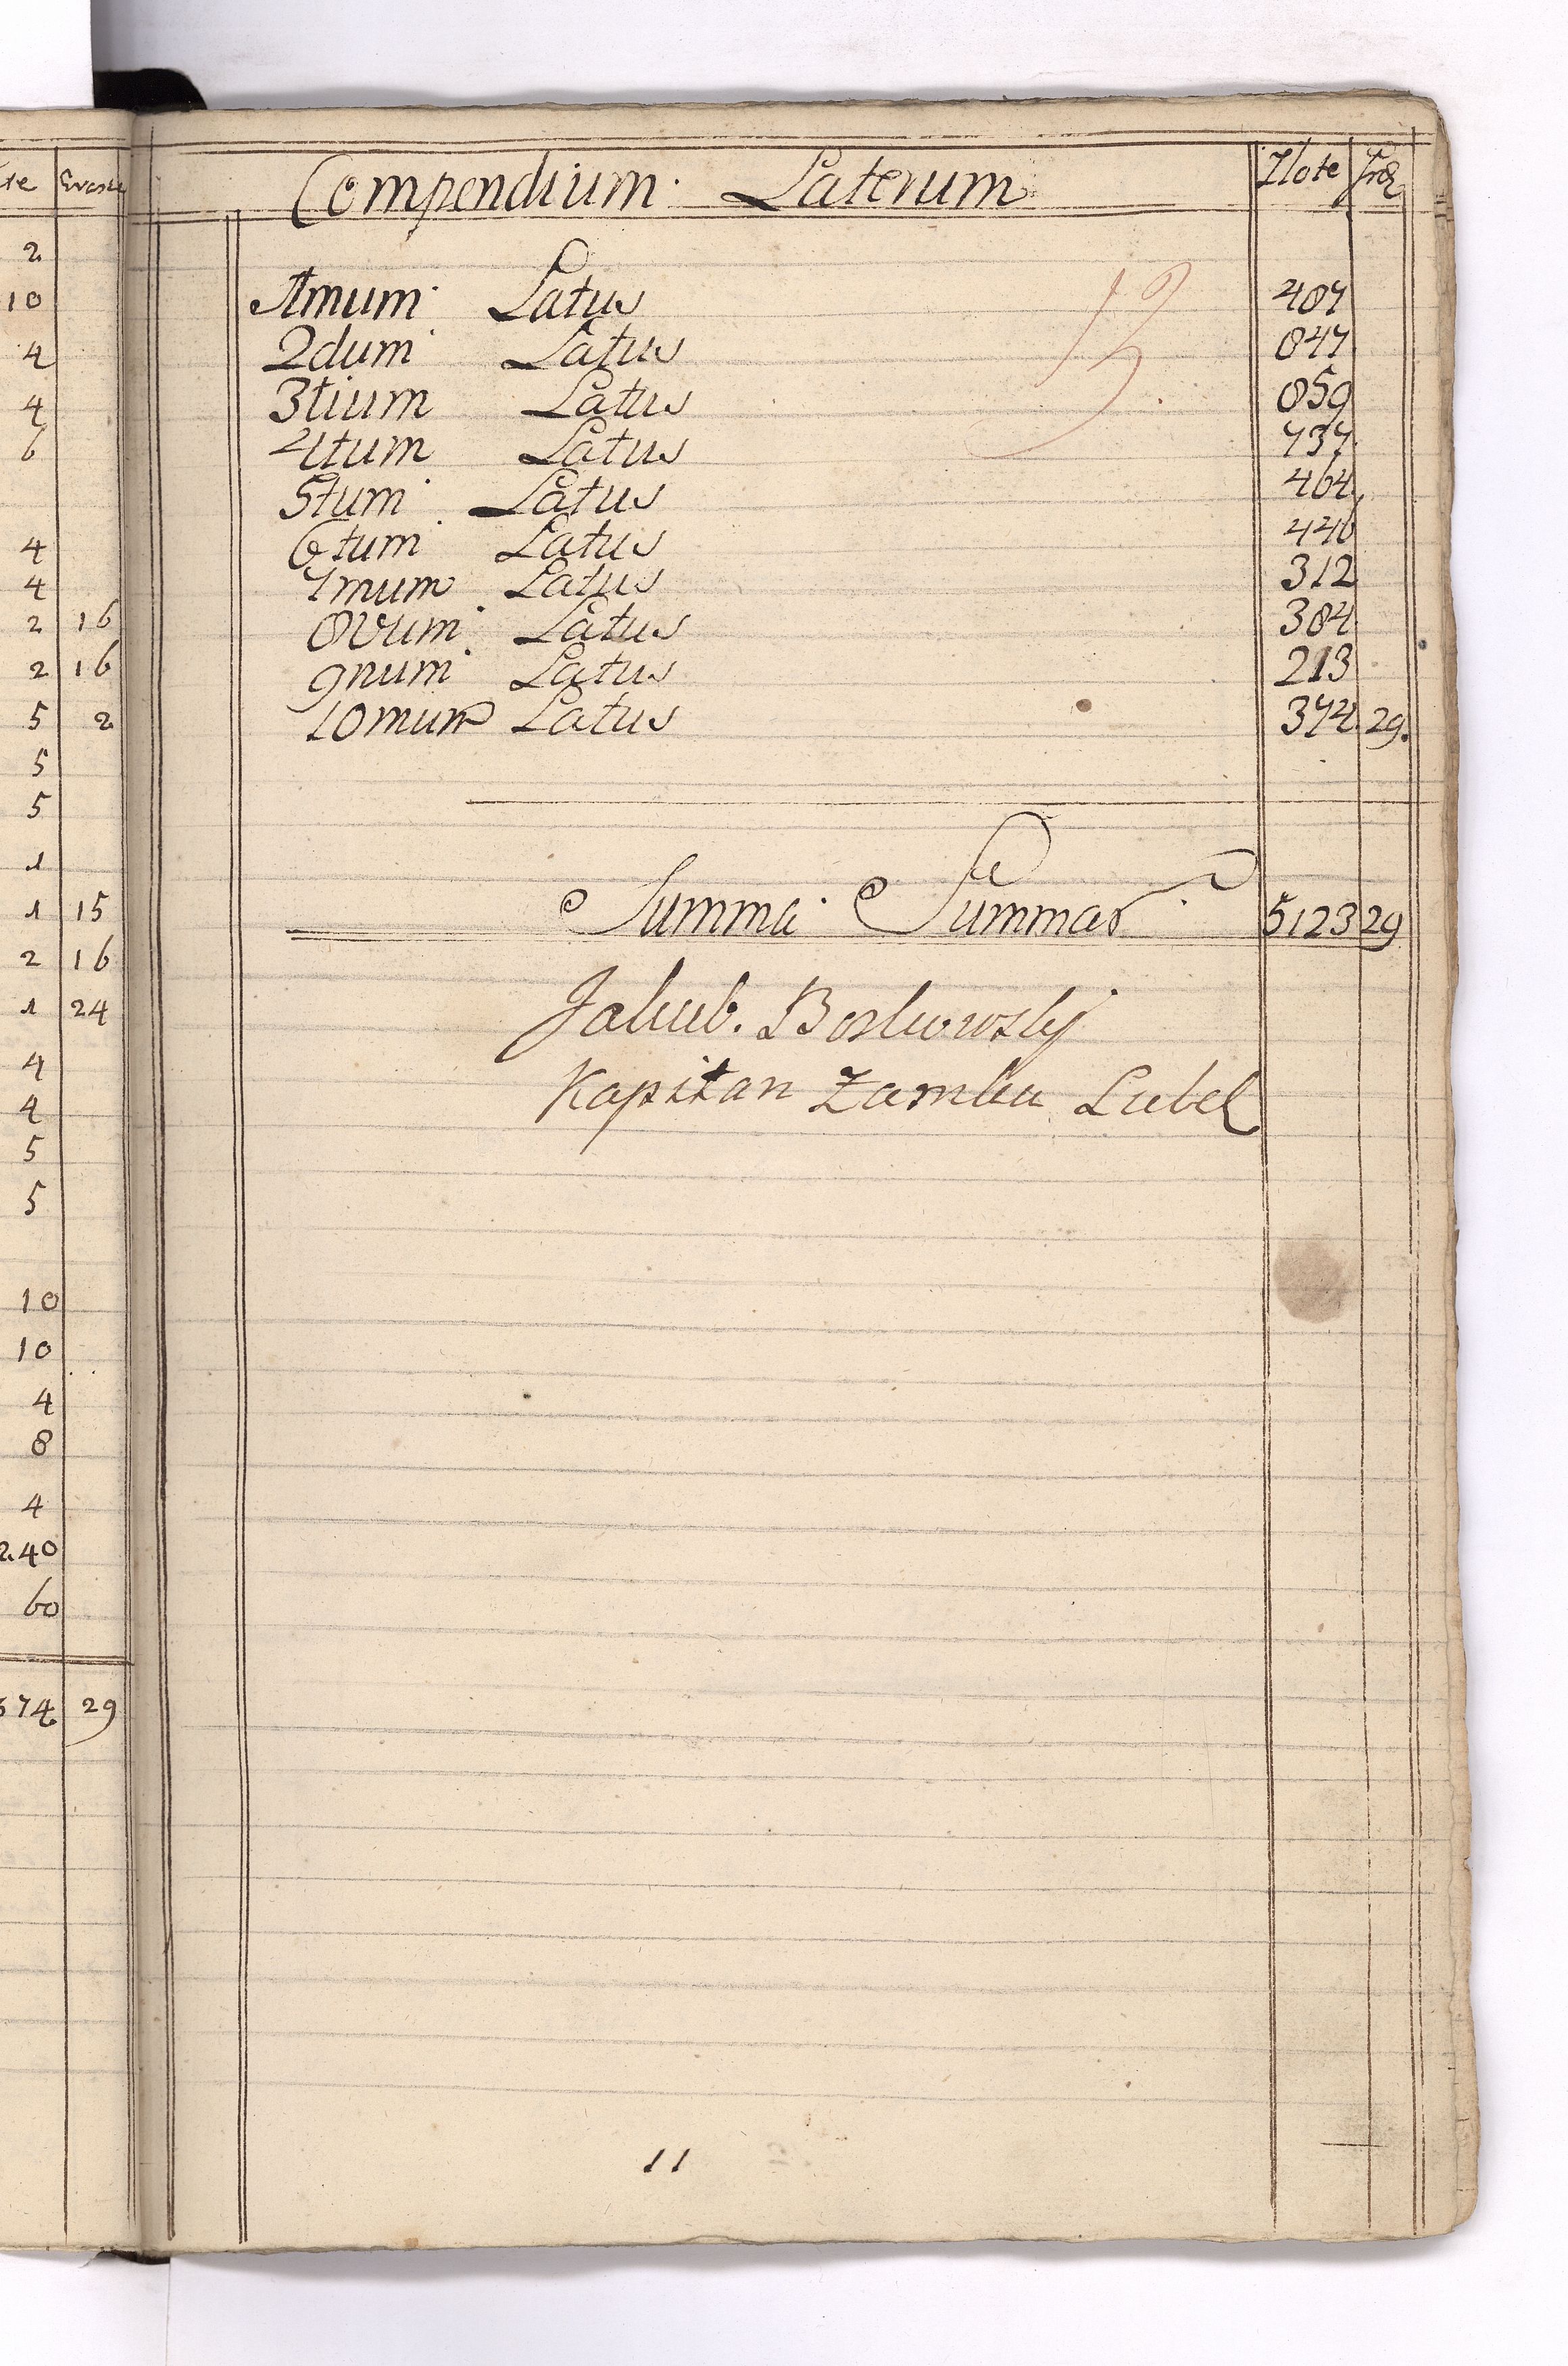 2
10
4
4
6
4
4
2 16
2 16
5 2
5
5
1
1 15
2 16
1 24
4
4
5
5
10
10
4
8
4
240
60
374 29
Compendium Laterum Złote Gro
1mum Latus 487
2dum Latus 847
3tium Latus 859
4tum Latus 737
5tum Latus 464
6tum Latus 446
7mum Latus 312
8vum Latus 384
9num Latus 213
10mum Latus 374. 29.
Summa Summar 5123 29
Jakub. Borkowsky
Kapitan Zamku Lubel
11